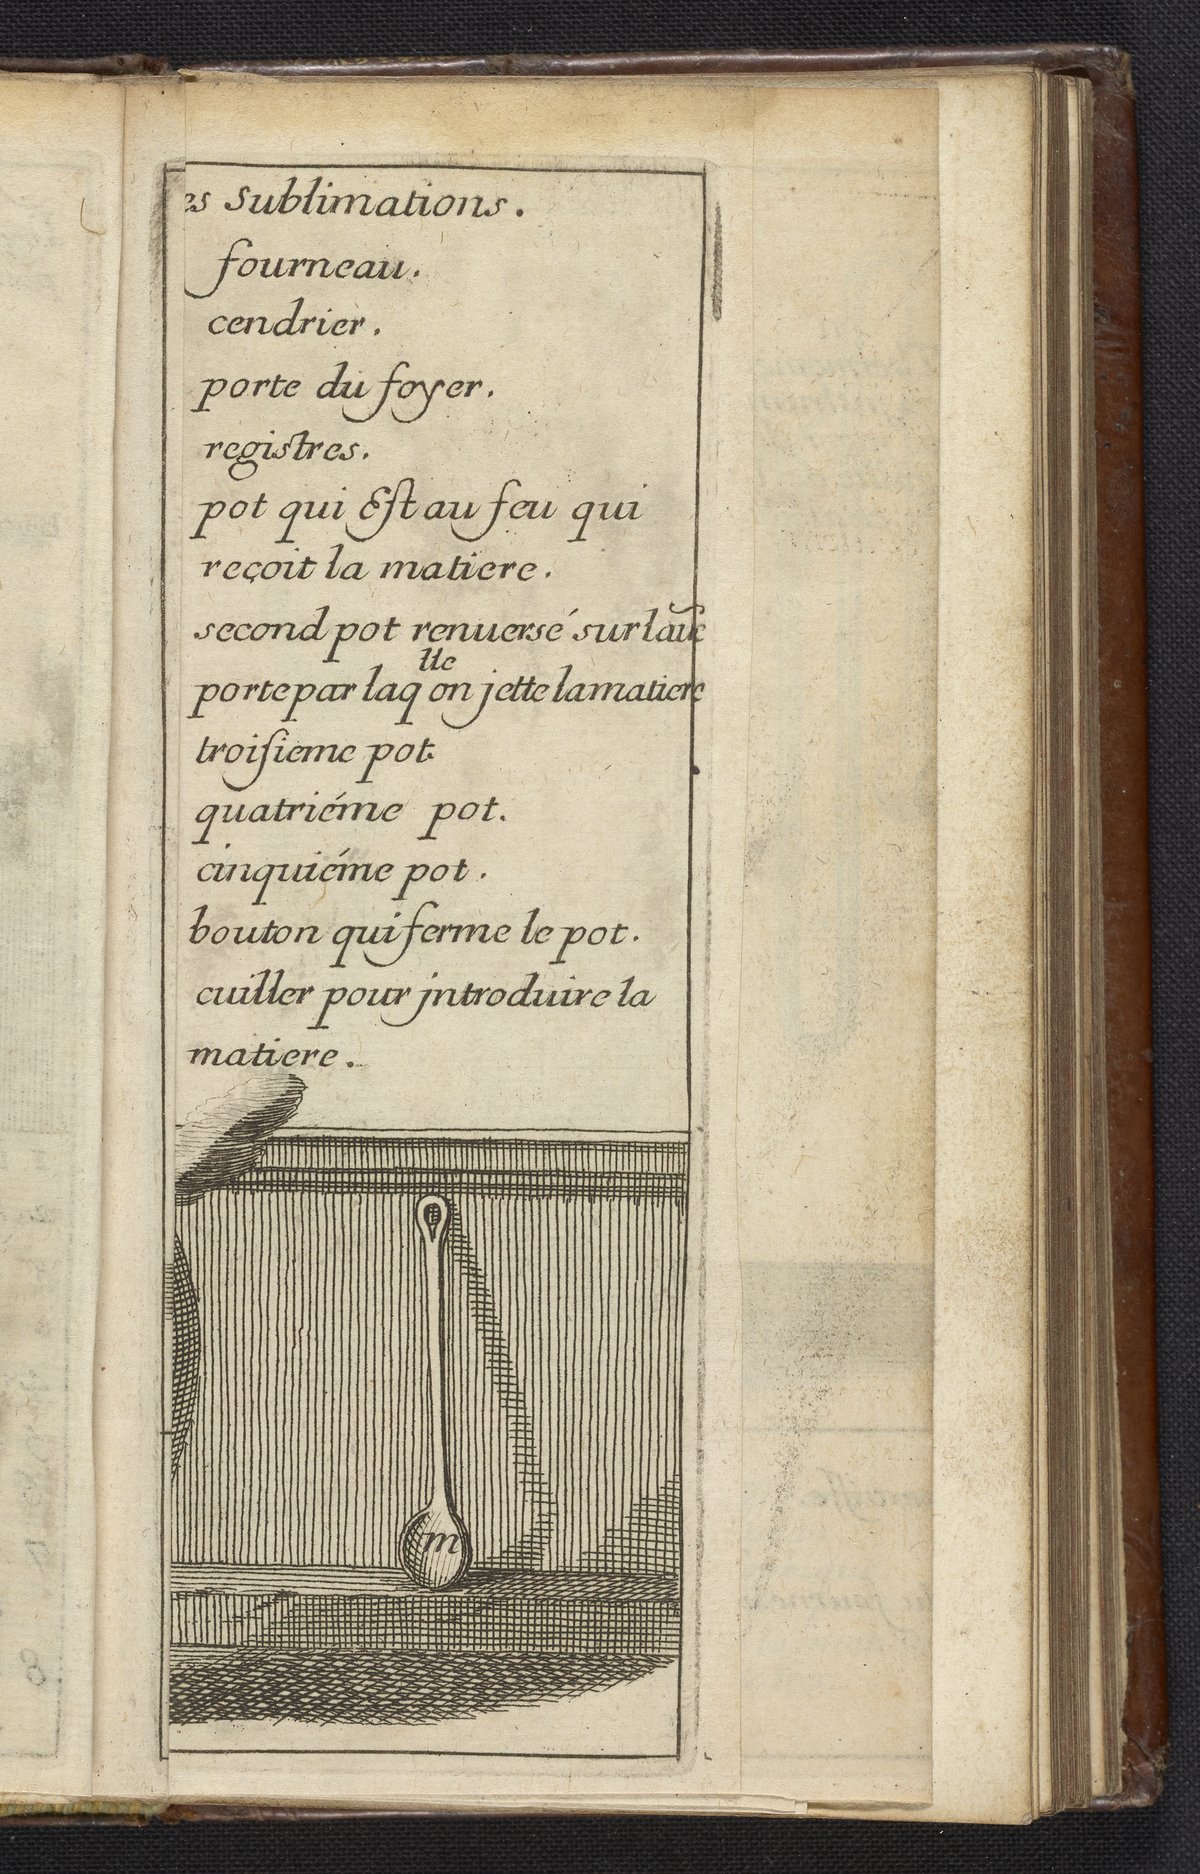 es sublimations.
fourneau.
cendrier.
porte du foyer.
registres.
pot qui Est au feu qui
reçoit la matiere.
second pot renuersé sur lauc
porte par laqlle on jette la matiere
troisieme pot.
quatriéme pot.
cinquiéme pot.
bouton qui ferme le pot.
cuiller pour jntroduire la
matiere.
m